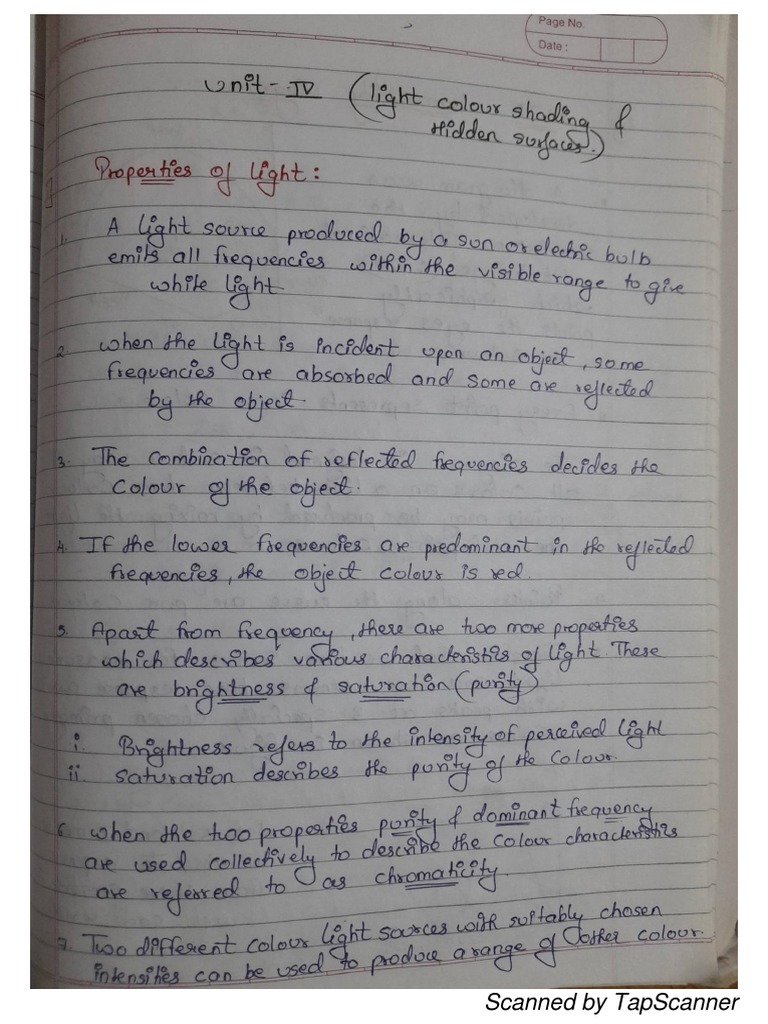 Page No.
Date :
Unit - IV (light colour shading &
Hidden surfaces.)
Properties of light :
1. A light source produced by a sun or electric bulb
emits all frequencies within the visible range to give
white light
2. when the light is incident upon an object, some
frequencies are absorbed and some are reflected
by the object.
3. The Combination of reflected frequencies decides the
Colour of the object.
4. If the lower frequencies are predominant in the reflected
frequencies, the object colour is red.
5. Apart from frequency, there are two more properties
which describes various characteristics of light. These
are brightness & saturation (purity)
i. Brightness refers to the intensity of perceived light
ii. saturation describes the purity of the Colour.
6. when the two properties purity & dominant frequency
are used collectively to describe the Colour characteristics
are referred to as chromaticity.
7. Two different colour light sources with suitably chosen
intensities can be used to produce a range of other colour.
Scanned by TapScanner